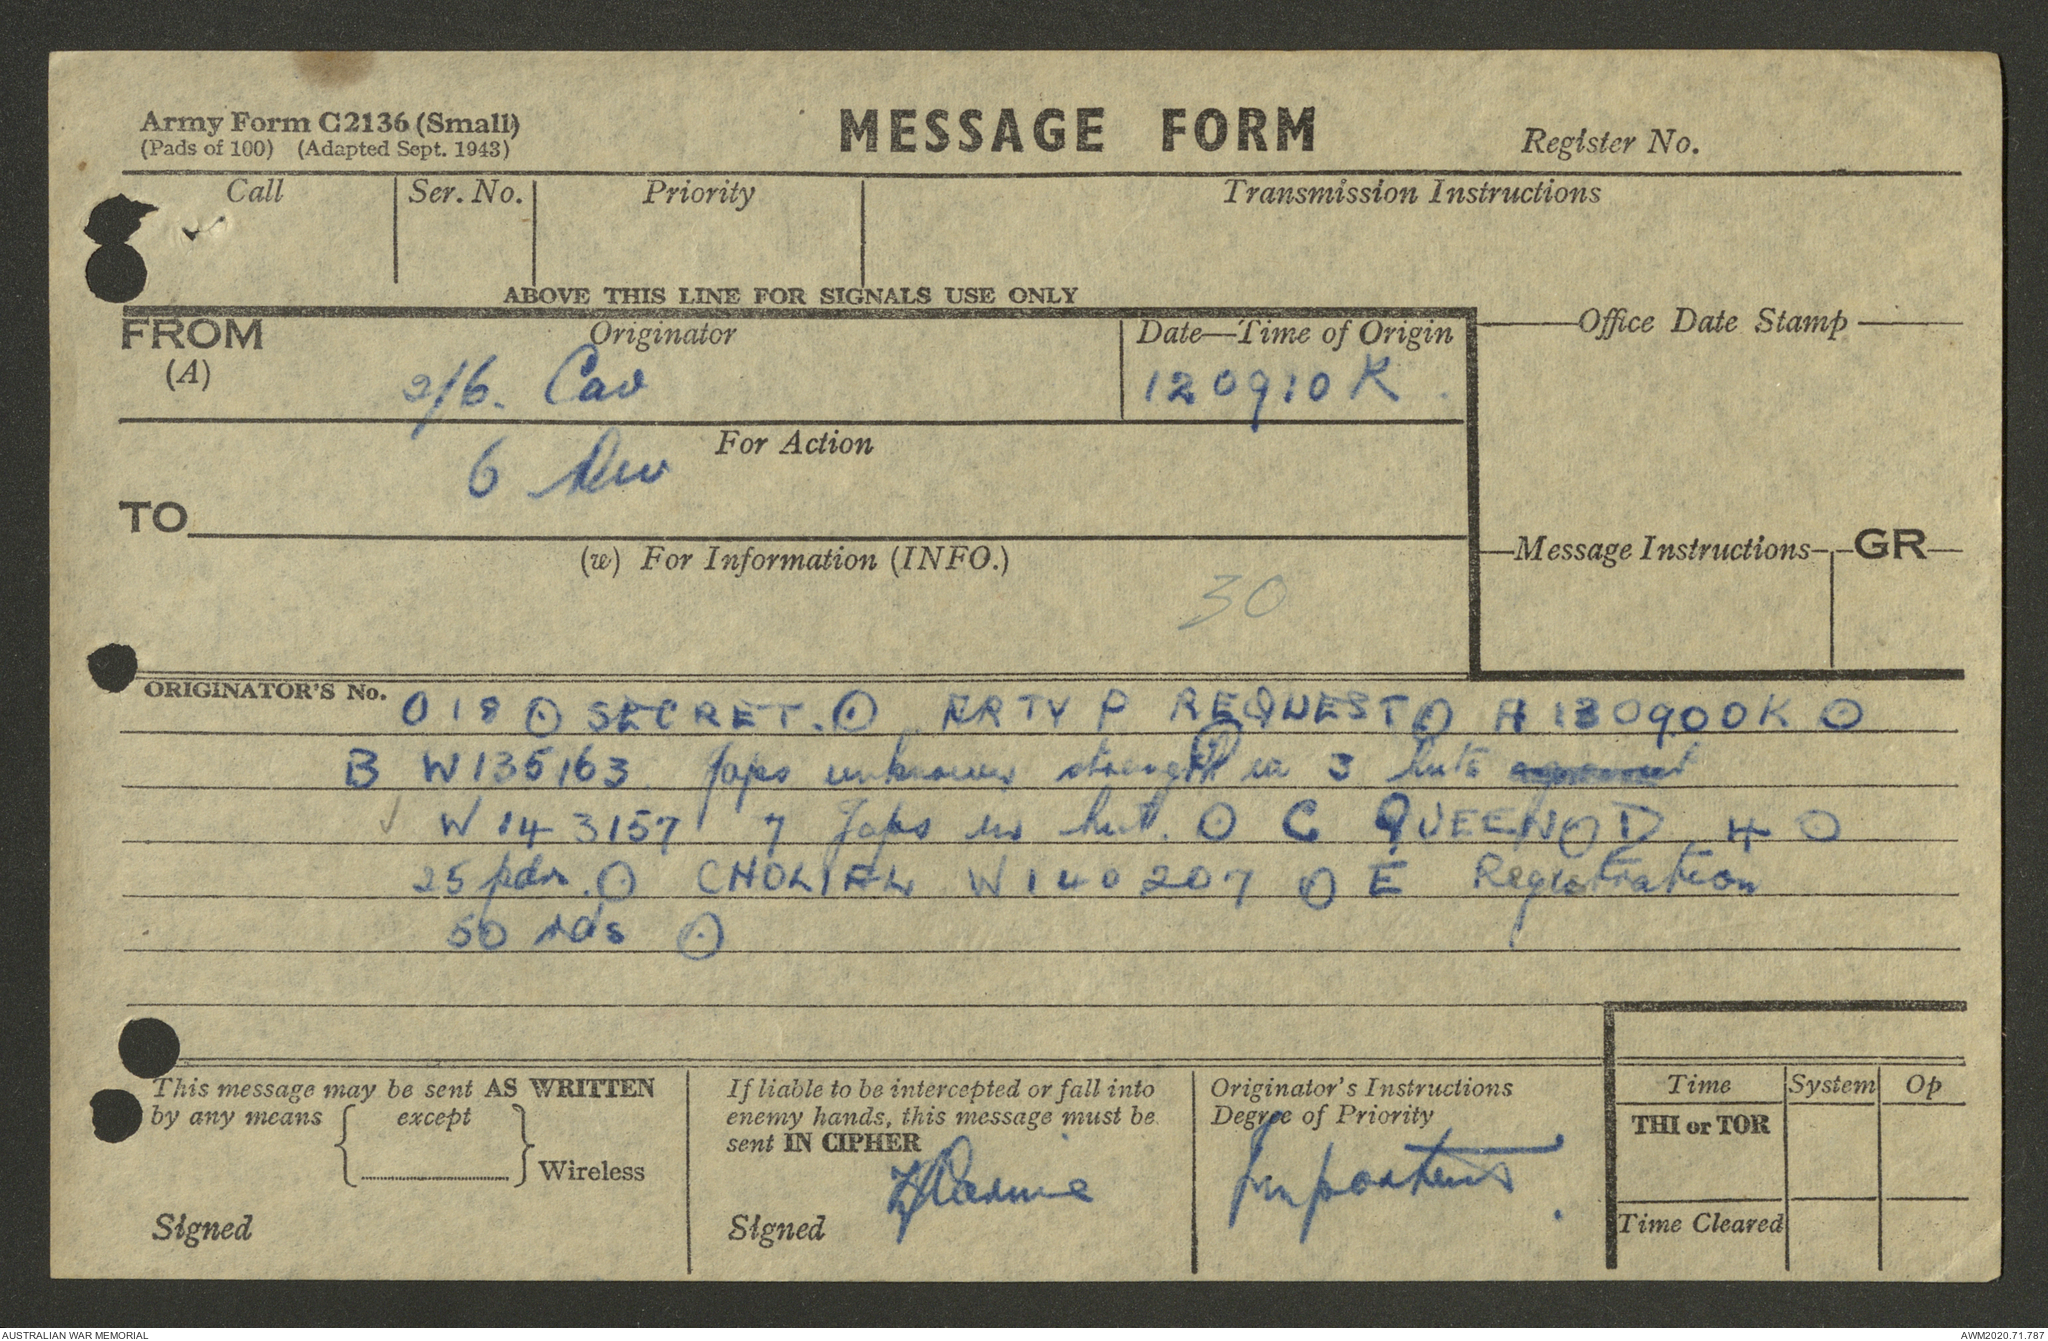 Army Form C2136 (Small)
(Pads of 100) (Adapted Sept. 1943)
MESSAGE FORM
Register No.
Call
Ser. No.
Priority
Transmission Instructions
ABOVE THIS LINE FOR SIGNALS USE ONLY
FROM
(A)
Originator
2/6. Cav
Date—Time of Origin
120910K.
Office Date Stamp
For Action
6 Div
TO
(w) For Information (INFO.)
30
Message Instructions
GR
ORIGINATOR'S No. 018 ⊙ SECRET. ⊙ ARTY P REQUEST ⊙ A 130900K ⊙
B W135163 Japs unknown strength in 3 huts
W143157 7 Japs in hut. ⊙ C QUEEN ⊙ D 4 ⊙
25 pdr. ⊙ W140207 ⊙ E Registration
50 rds ⊙
This message may be sent AS WRITTEN
by any means { except } Wireless
Signed
If liable to be intercepted or fall into
enemy hands, this message must be
sent IN CIPHER
Signed
Originator's Instructions
Degree of Priority
Important.
Time
System
Op
THI or TOR
Time Cleared
AUSTRALIAN WAR MEMORIAL
AWM2020.71.787